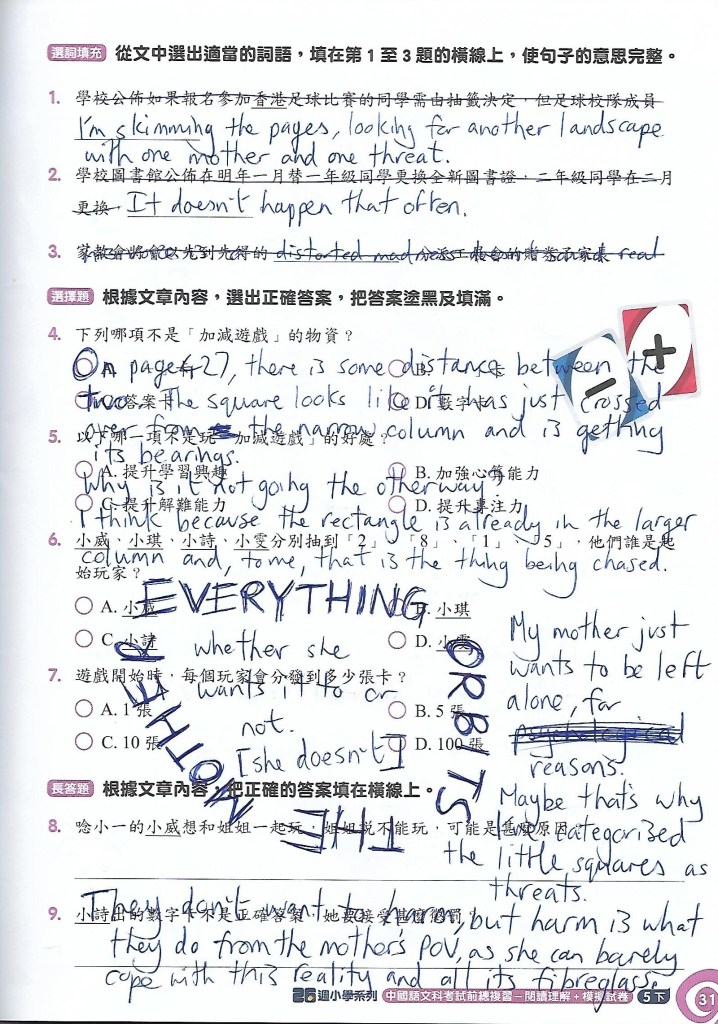 選詞填充 從文中選出適當的詞語，填在第 1 至 3 題的橫線上，使句子的意思完整。
1. 學校公佈如果報名參加香港足球比賽的同學需由抽籤決定，但足球校隊成員
I'm skimming the pages, looking for another landscape
with one mother and one threat.
2. 學校圖書館公佈在明年一月替一年級同學更換全新圖書證，二年級同學在二月
更換 It doesn't happen that often.
3. 家教會將會以先到先得的 distorted madness real
選擇題 根據文章內容，選出正確答案，把答案塗黑及填滿。
4. 下列哪項不是「加減遊戲」的物資？
On page 27, there is some distance between the
two. The square looks like it has just crossed
C. 答案卡 D. 數字卡
over from the narrow column and is getting
5. 以下哪一項不是玩「加減遊戲」的好處？
its bearings.
A. 提升學習興趣 B. 加強心算能力
Why is it not going the other way?
C. 提升解難能力 D. 提升專注力
I think because the rectangle is already in the larger
6. 小威、小琪、小詩、小雯分別抽到「2」、「8」、「1」、「5」，他們誰是起
column and, to me, that is the thing being chased.
始玩家？
EVERYTHING
ORBITS
THE
MOTHER
A. 小威 B. 小琪
C. 小詩 D. 小雯
whether she
wants it to or
not.
[she doesn't]
7. 遊戲開始時，每個玩家會分發到多少張卡？
A. 1 張 B. 5 張
C. 10 張 D. 100 張
My mother just
wants to be left
alone, for
psychological
reasons.
Maybe that's why
I've categorised
the little squares as
threats.
長答題 根據文章內容，把正確的答案填在橫線上。
8. 唸小一的小威想和姐姐一起玩，姐姐說不能玩，可能是甚麼原因？
They don't want to harm, but harm is what
9. 小詩出的數字卡不是正確答案，她要接受甚麼懲罰？
they do from the mother's POV, as she can barely
cope with this reality and all its fibreglass.
26週小學系列 中國語文科考試前總複習－閱讀理解＋模擬試卷 5下 31